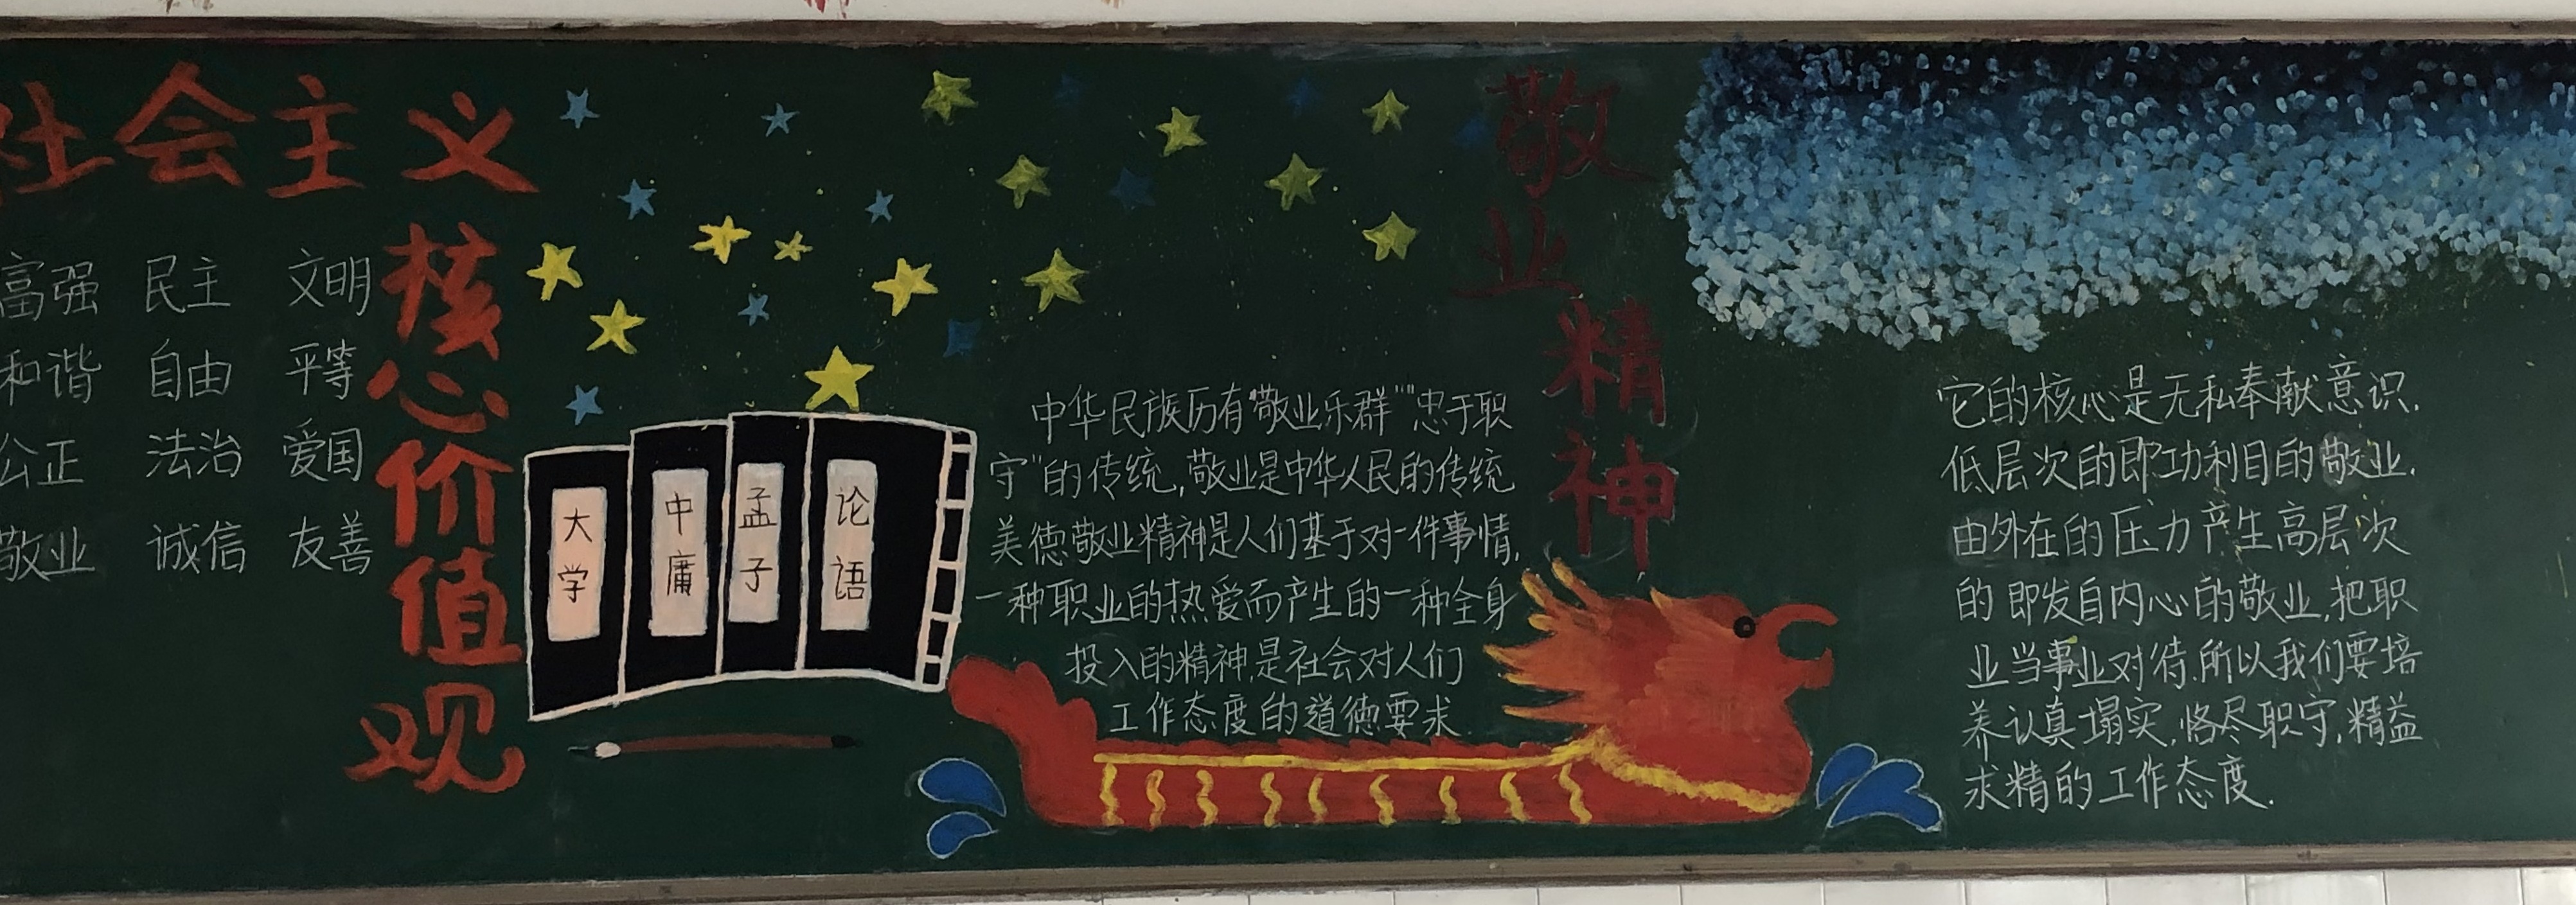 社会主义
核心价值观
富强 民主 文明
和谐 自由 平等
公正 法治 爱国
敬业 诚信 友善
大学
中庸
孟子
论语
敬业精神
中华民族历有“敬业乐群”“忠于职
守”的传统,敬业是中华人民的传统
美德敬业精神是人们基于对一件事情,
一种职业的热爱而产生的一种全身
投入的精神,是社会对人们
工作态度的道德要求.
它的核心是无私奉献意识.
低层次的即功利目的敬业.
由外在的压力产生高层次
的即发自内心的敬业,把职
业当事业对待.所以我们要培
养认真塌实,恪尽职守,精益
求精的工作态度.